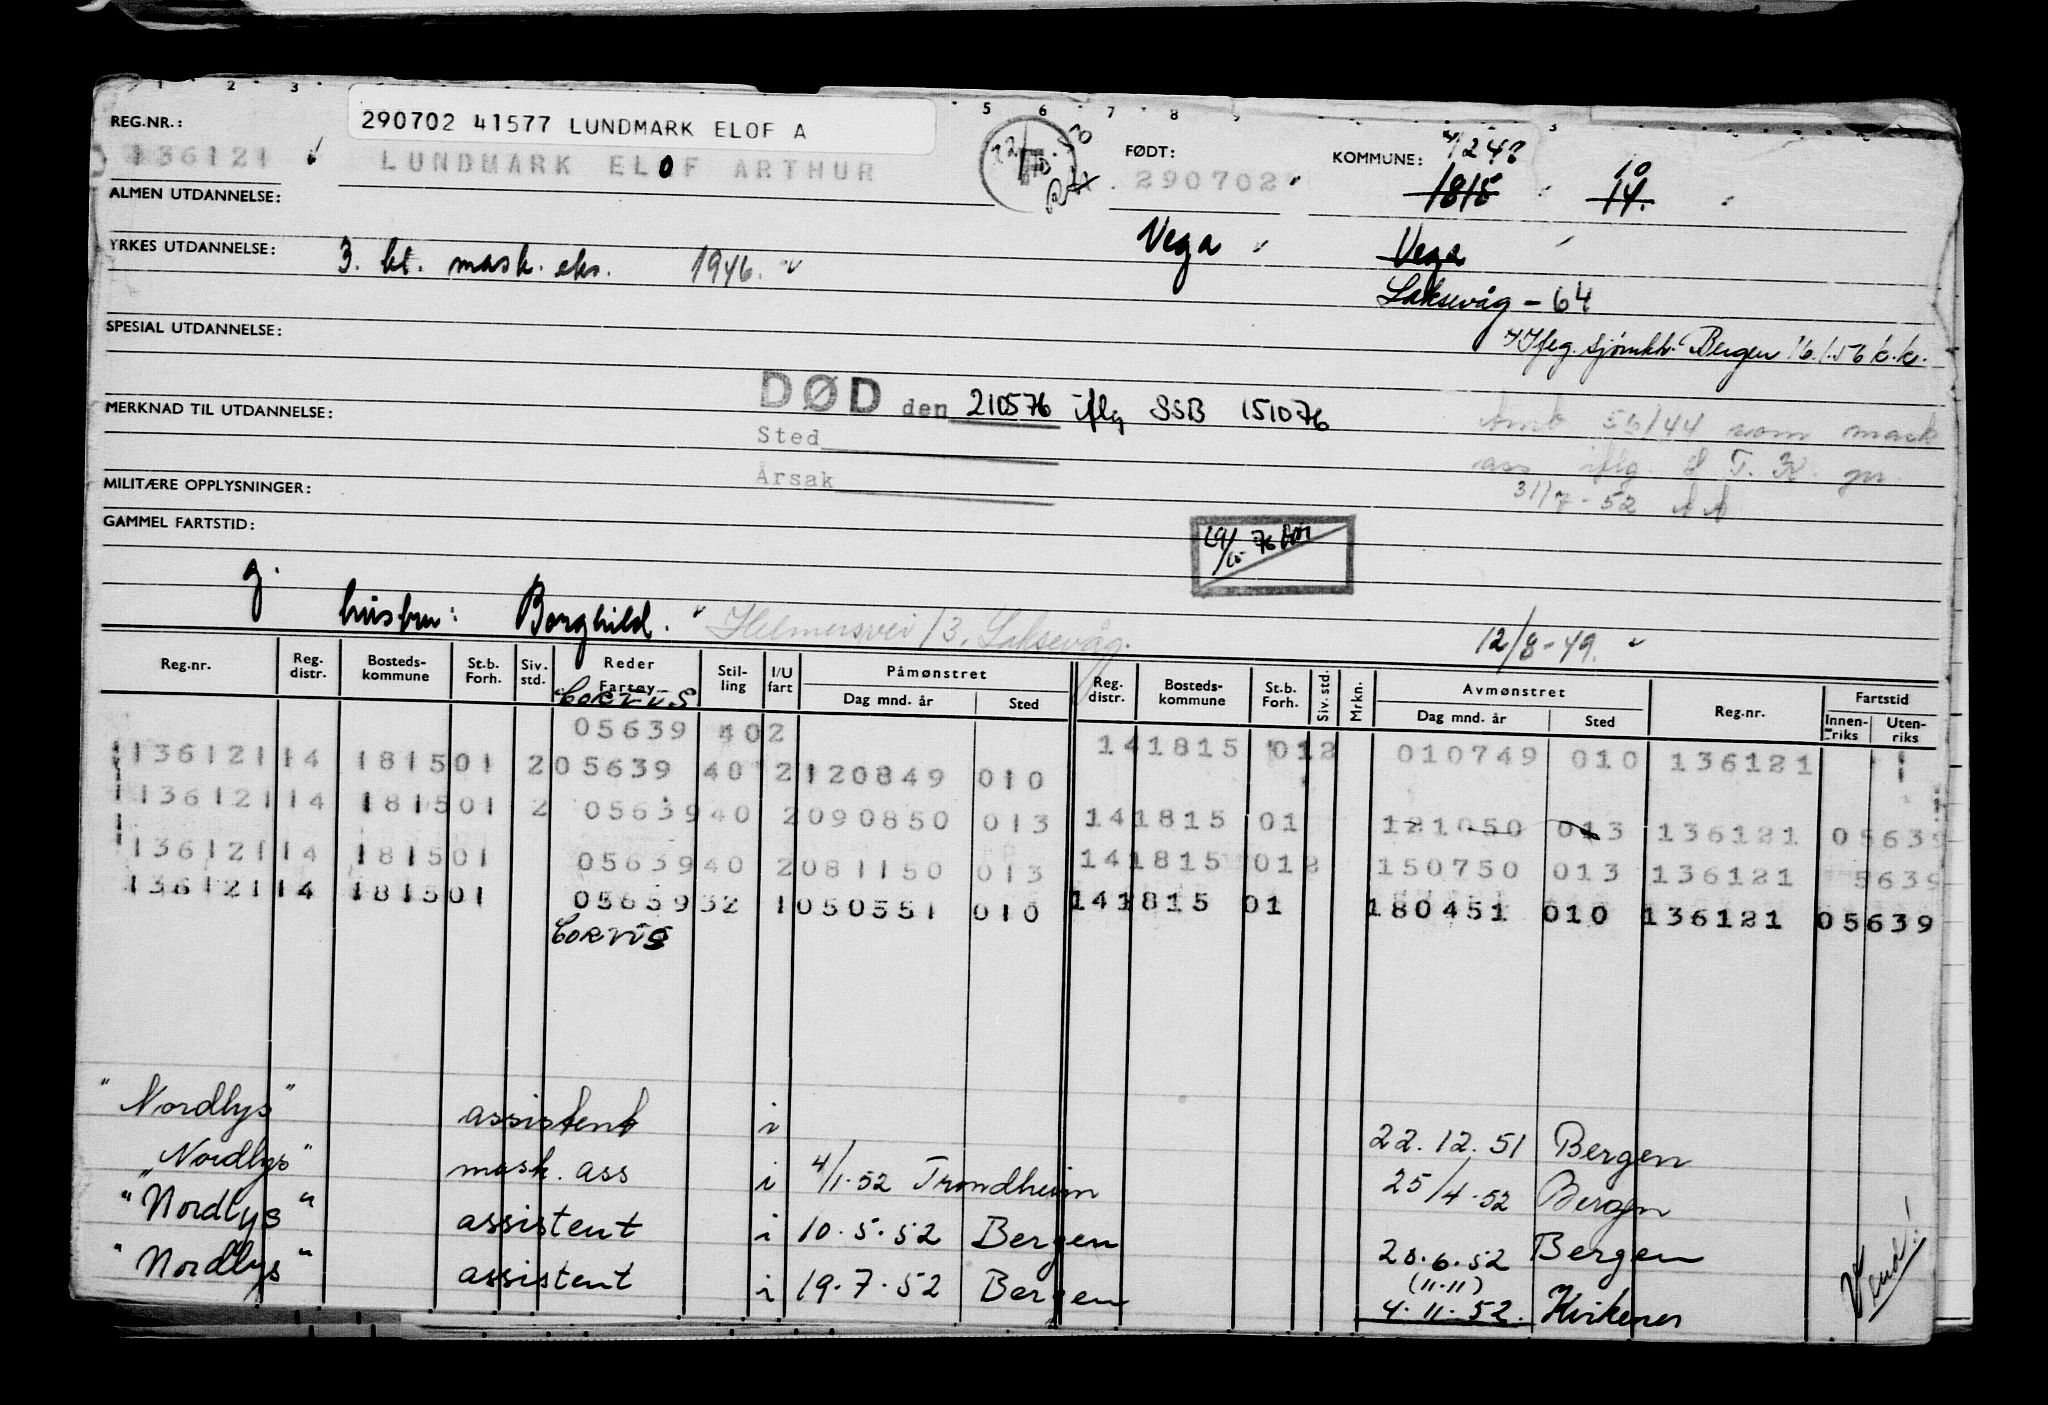 1 2 3 5 6 7 8
REG.NR.: 290702 41577 LUNDMARK ELOF A
136121 LUNDMARK ELOF ARTHUR FØDT: 290702 KOMMUNE: 1815 14. 10
ALMEN UTDANNELSE:
YRKES UTDANNELSE: 3. kl. mask. eks. 1946. Vega Vega
Laksevåg - 64
SPESIAL UTDANNELSE: Iføg. sjømkk. Bergen 16.1.56 k.k.
DØD den 210576 iflg SSB 151076
MERKNAD TIL UTDANNELSE:
Sted
56/44 som mask
Årsak
ass iflg.
MILITÆRE OPPLYSNINGER: 31/7-52
GAMMEL FARTSTID:
g.
hustru: Borghild. Helmersvei 13, Laksevåg. 12/8-49.
Reg.nr. Reg. distr. Bosteds-kommune St.b. Forh. Siv. std. Reder Fartøy Stil-ling I/U fart Påmønstret Dag mnd. år Sted Reg. distr. Bosteds-kommune St.b. Forh. Siv. std. Mrkn. Avmønstret Dag mnd. år Sted Reg.nr. Fartstid Innen-riks Uten-riks
CORVUS
05639 402 141815 012 010749 010 136121
136121 14 1815 01 2 05639 40 2 120849 010
136121 14 1815 01 2 05639 40 2 090850 013 141815 01 121050 013 136121 05639
136121 14 1815 01 05639 40 2 081150 013 141815 012 150750 013 136121 5639
136121 14 1815 01 05639 32 1 050551 010 141815 01 180451 010 136121 05639
CORVUS
"Nordlys" assistent i 22.12.51 Bergen
"Nordlys" mask. ass i 4/1.52 Trondheim 25/4.52 Bergen
"Nordlys" assistent i 10.5.52 Bergen 28.6.52 Bergen
(11.11)
"Nordlys" assistent i 19.7.52 Bergen 4.11.52. Kirkenes
Vend!